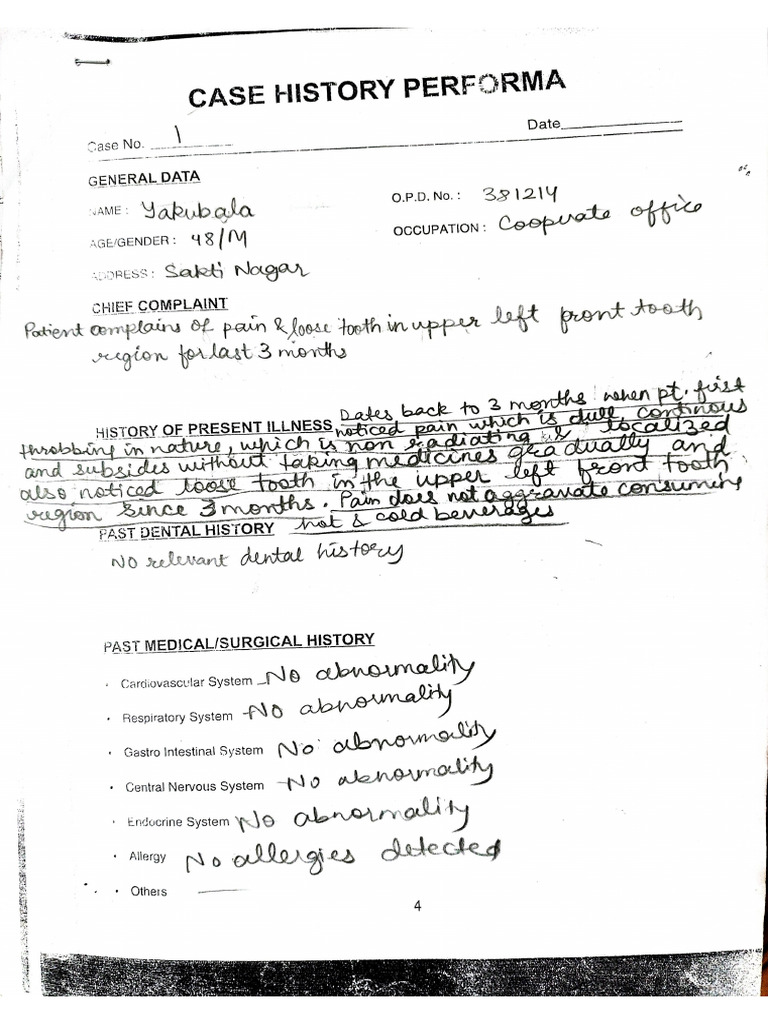 CASE HISTORY PERFORMA
Case No. 1 Date
GENERAL DATA
NAME : Yakubala O.P.D. No. : 381214
AGE/GENDER : 48/M OCCUPATION : Cooperate office
ADDRESS : Sakti Nagar
CHIEF COMPLAINT
Patient complains of pain & loose tooth in upper left front tooth
region for last 3 months
HISTORY OF PRESENT ILLNESS Dates back to 3 months when pt. first
noticed pain which is dull, continous
throbbing in nature, which is non radiating & localized
and subsides without taking medicines gradually and
also noticed loose tooth in the upper left front tooth
region since 3 months. Pain does not aggravate consuming
hot & cold beverages
PAST DENTAL HISTORY
No relevant dental history
PAST MEDICAL/SURGICAL HISTORY
• Cardiovascular System No abnormality
• Respiratory System No abnormality
• Gastro Intestinal System No abnormality
• Central Nervous System No abnormality
• Endocrine System No abnormality
• Allergy No allergies detected
• Others
4